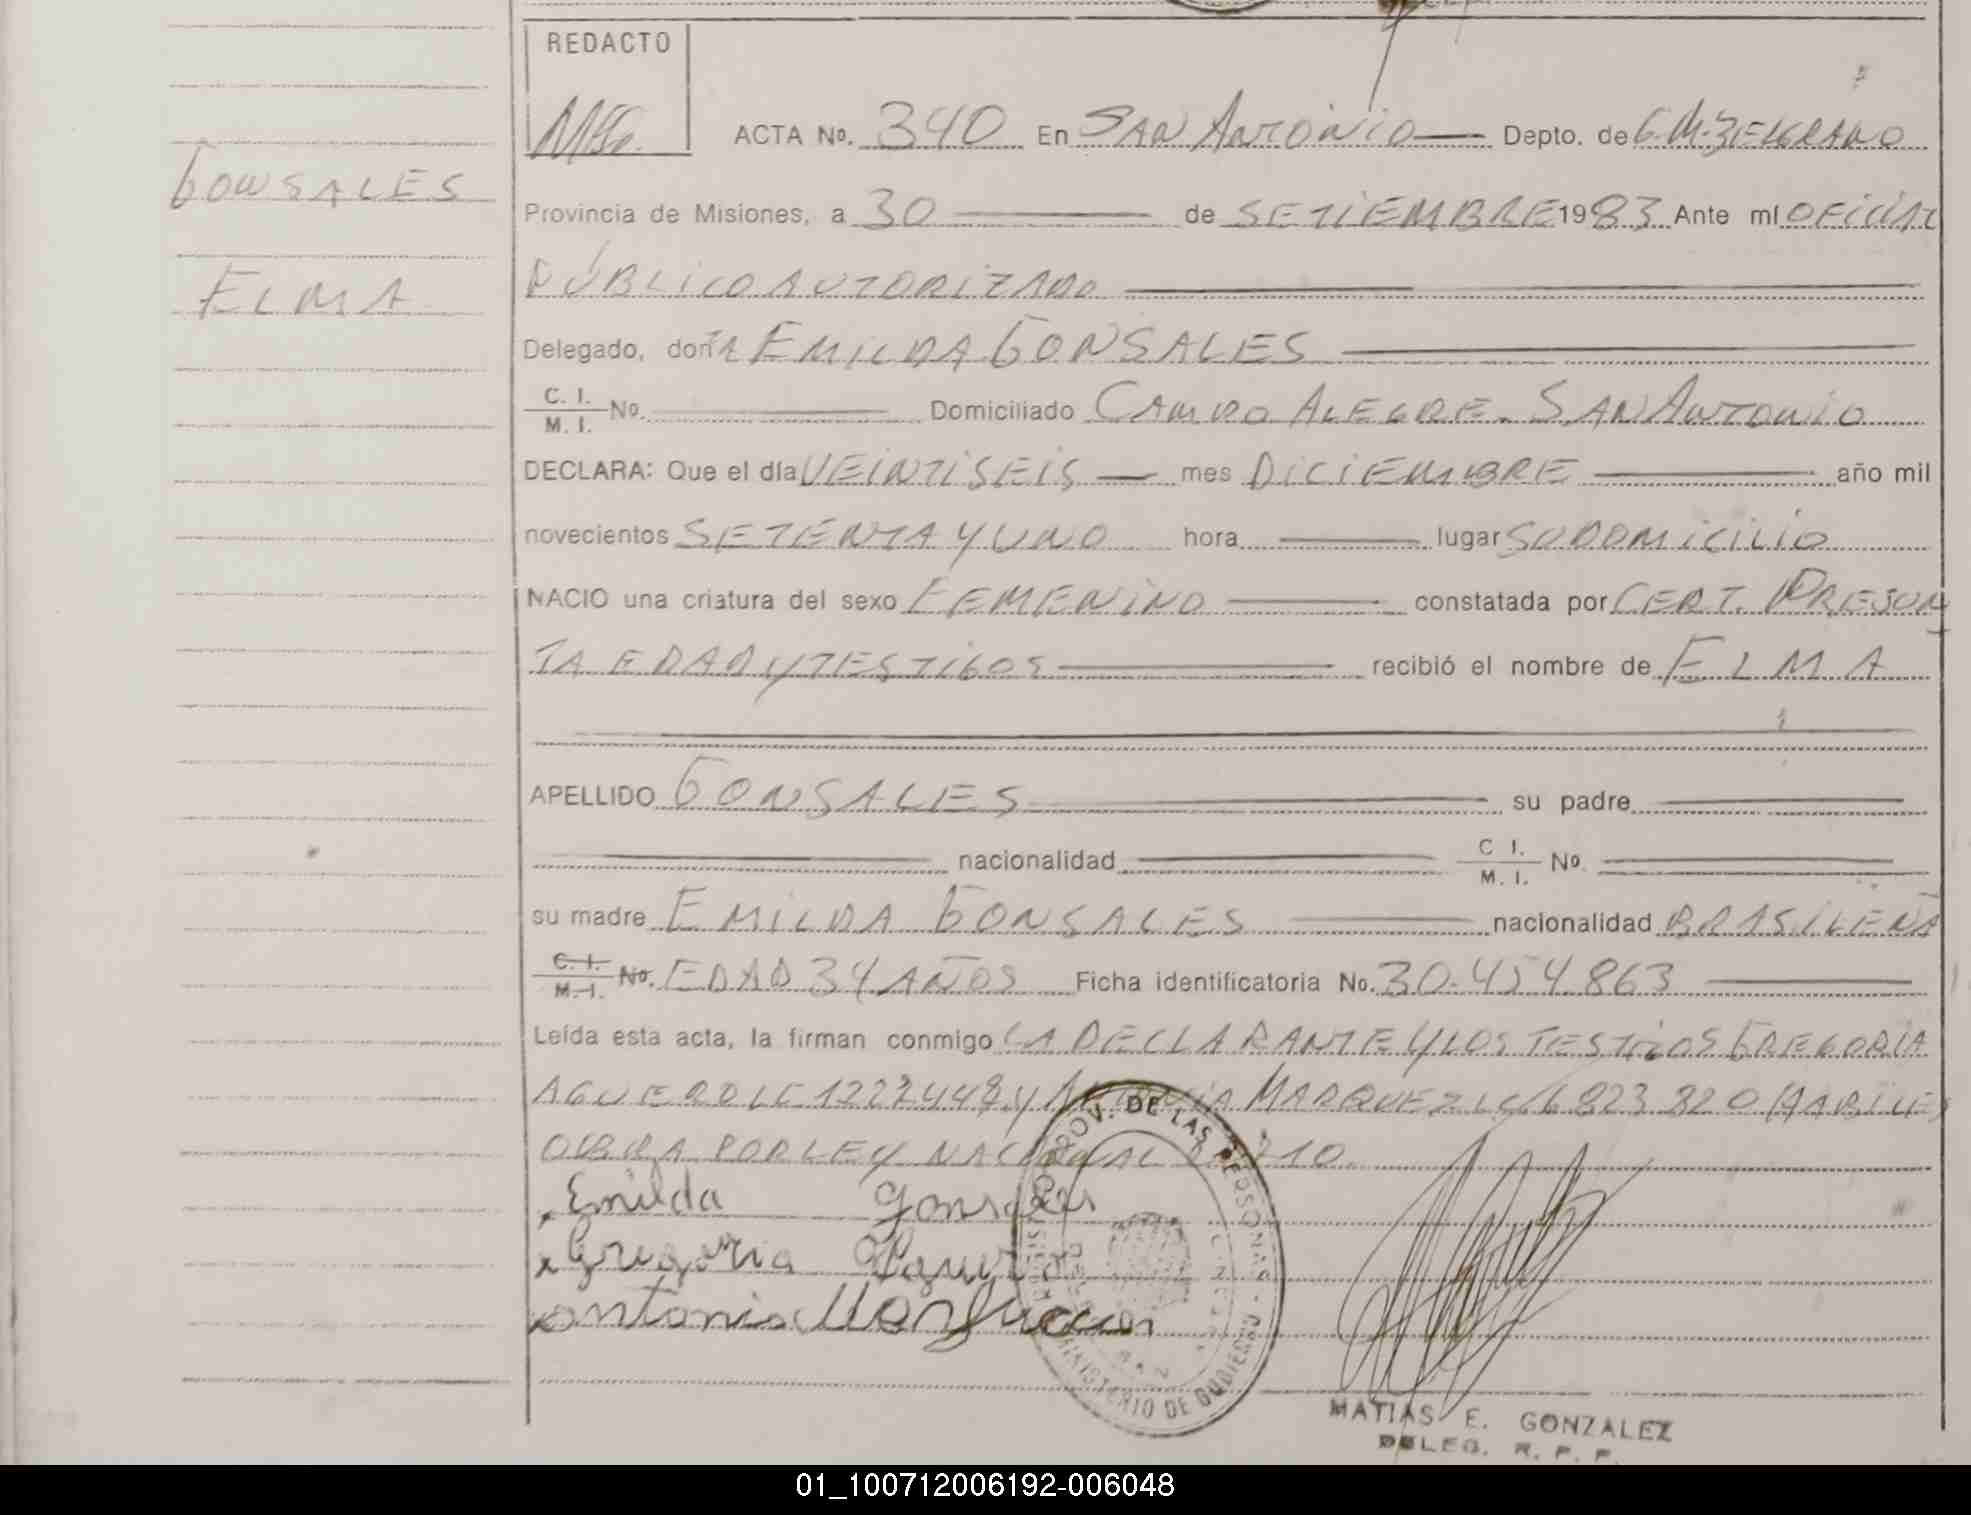 REDACTO
ACTA No. 340 En SAN ANTONIO Depto. de G. M. BELGRANO
GONSALES
Provincia de Misiones, a 30 de SETIEMBRE 1983 Ante mí OFICIAL
PÚBLICO AUTORIZADO
ELMA
Delegado, doña EMILDA GONSALES
C. I. M. I. No. Domiciliado CAMPO ALEGRE. SAN ANTONIO
DECLARA: Que el día VEINTISEIS mes DICIEMBRE año mil
novecientos SETENTA Y UNO hora lugar SU DOMICILIO
NACIO una criatura del sexo FEMENINO constatada por CERT. PRESUN
TA EDAD Y TESTIGOS recibió el nombre de ELMA
APELLIDO GONSALES su padre
nacionalidad C I. M. I. No.
su madre EMILDA GONSALES nacionalidad BRASILEÑA
C. I. M. I. No. EDAD 34 AÑOS Ficha identificatoria No. 30.454.863
Leída esta acta, la firman conmigo LA DECLARANTE Y LOS TESTIGOS GREGORIA
AGUERO LC Y MARQUEZ LC 6823820 HABILES
OBRA POR LEY NACIONAL
Emilda Gonsales
Gregoria
Antonia
PROV. DE LAS PERSONAS
MINISTERIO DE GOBIERNO
MATIAS E. GONZALEZ
DELEG. R. P. P.
01_100712006192-006048